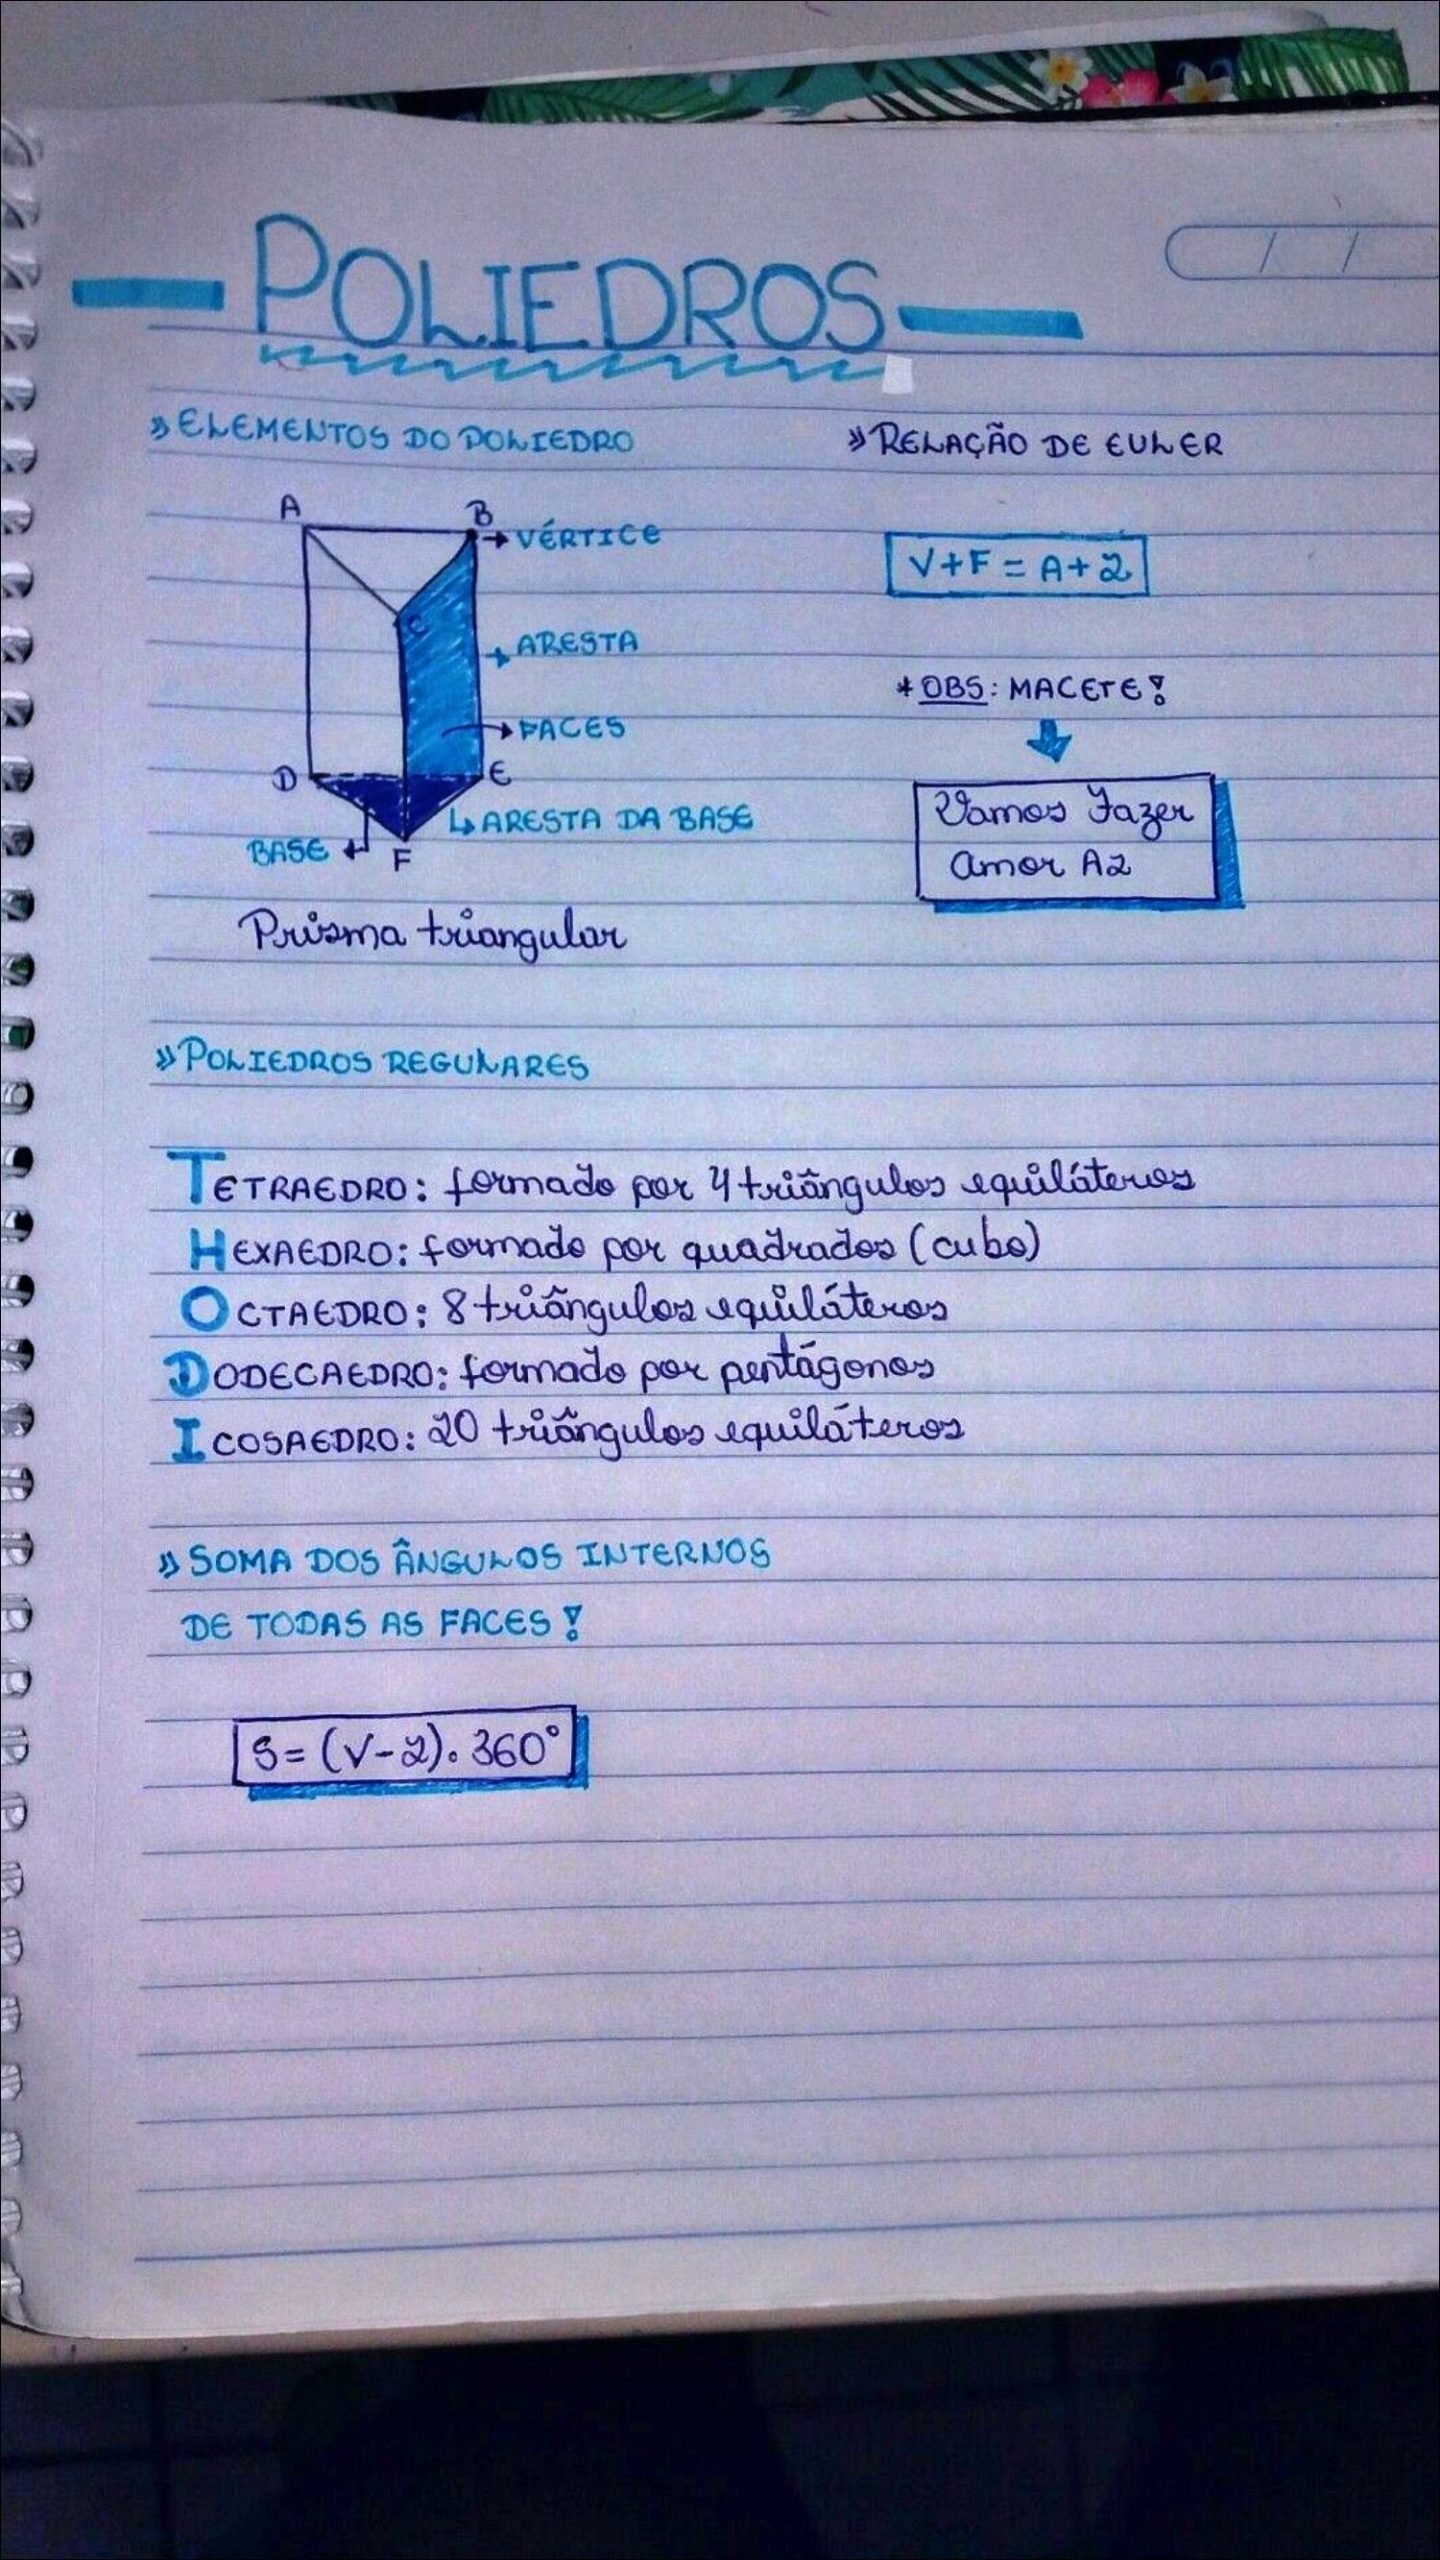 POLIEDROS
» ELEMENTOS DO POLIEDRO
A
B
→ VÉRTICE
C
→ ARESTA
→ FACES
D
E
↳ ARESTA DA BASE
BASE
F
Prisma triangular
» RELAÇÃO DE EULER
V+F = A+2
* OBS: MACETE!
Vamos Fazer
Amor A2
» POLIEDROS REGULARES
TETRAEDRO: formado por 4 triângulos equiláteros
HEXAEDRO: formado por quadrados (cubo)
OCTAEDRO: 8 triângulos equiláteros
DODECAEDRO: formado por pentágonos
ICOSAEDRO: 20 triângulos equiláteros
» SOMA DOS ÂNGULOS INTERNOS
DE TODAS AS FACES!
S = (V-2). 360°